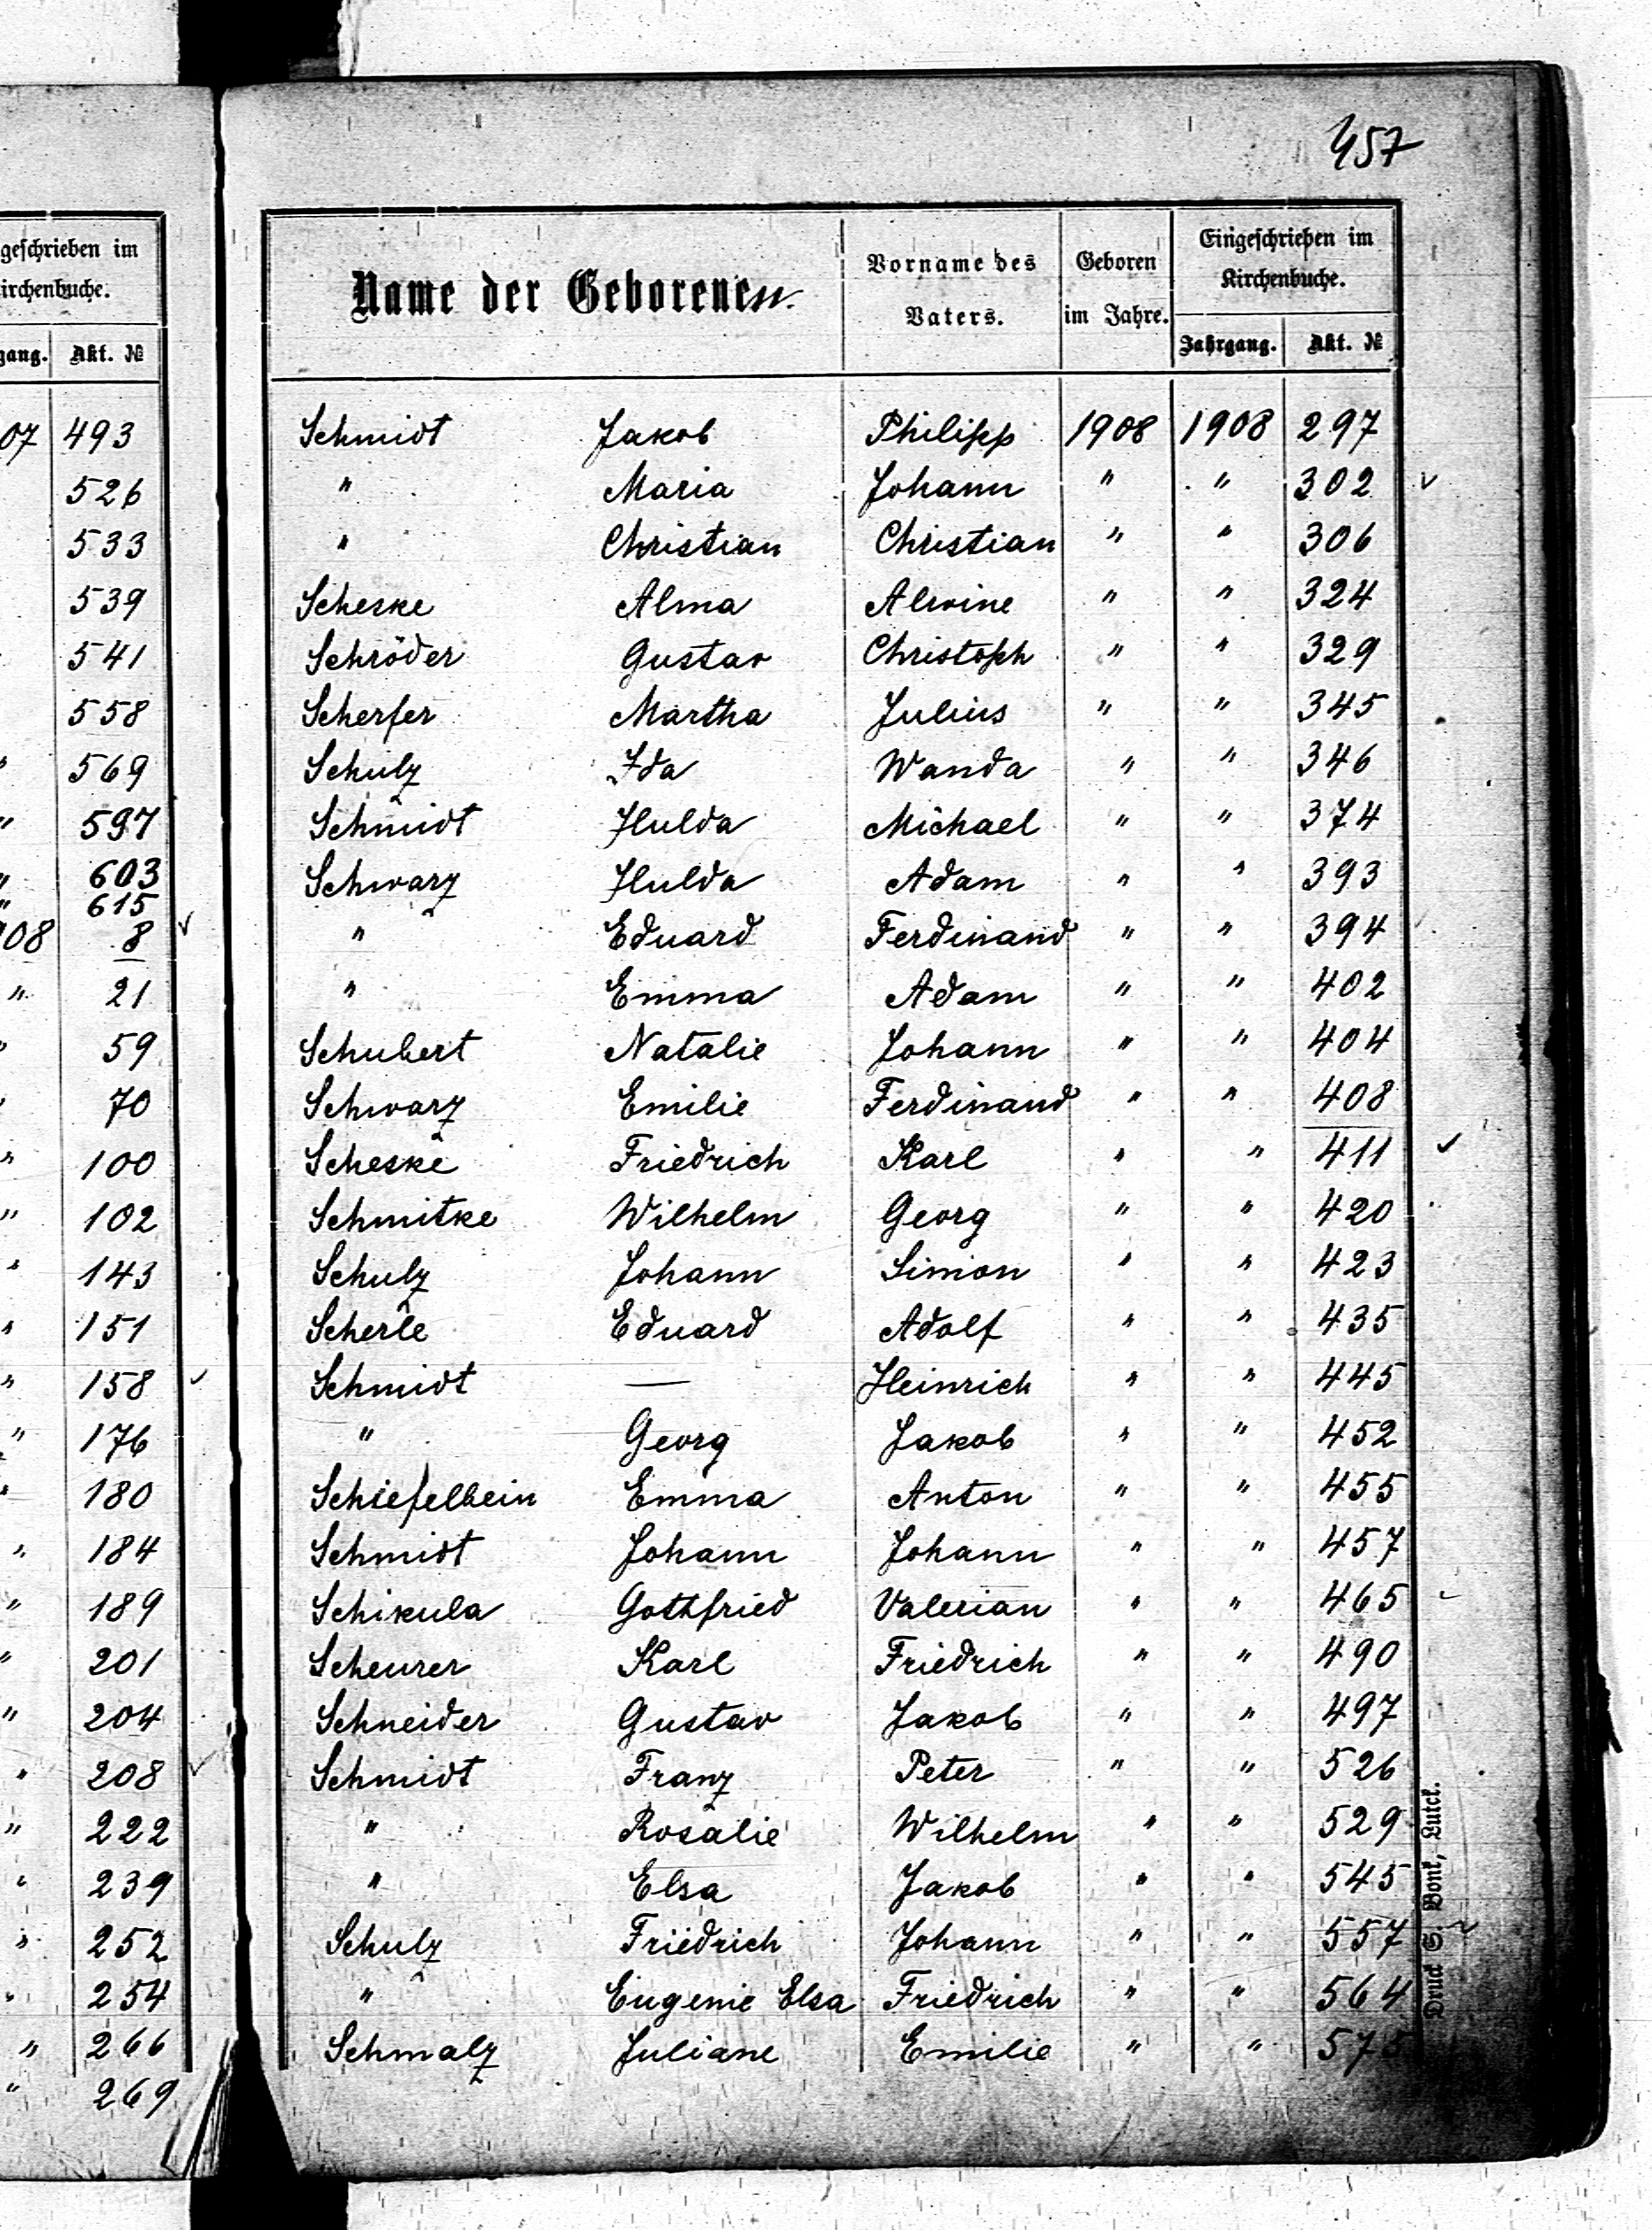 457
geschrieben im
irchenbuche.
gang. Akt. №
07 493
526
533
539
541
558
" 569
" 597
" 603
" 615
08 8
" 21
" 59
" 70
" 100
" 102
" 143
" 151
" 158
" 176
" 180
" 184
" 189
" 201
" 204
" 208
" 222
" 239
" 252
" 254
" 266
" 269
Name der Geborenen. Vorname des Vaters. Geboren im Jahre. Eingeschrieben im Kirchenbuche.
Jahrgang. Akt. №
Schmidt Jakob Philipp 1908 1908 297
" Maria Johann " " 302
" Christian Christian " " 306
Scheske Alma Alwine " " 324
Schröder Gustav Christoph " " 329
Scherfer Martha Julius " " 345
Schulz Ida Wanda " " 346
Schmidt Hulda Michael " " 374
Schwarz Hulda Adam " " 393
" Eduard Ferdinand " " 394
" Emma Adam " " 402
Schubert Natalie Johann " " 404
Schwarz Emilie Ferdinand " " 408
Scheske Friedrich Karl " " 411
Schmitke Wilhelm Georg " " 420
Schulz Johann Simon " " 423
Scherle Eduard Adolf " " 435
Schmidt — Heinrich " " 445
" Georg Jakob " " 452
Schiefelbein Emma Anton " " 455
Schmidt Johann Johann " " 457
Schikula Gottfried Valerian " " 465
Scheurer Karl Friedrich " " 490
Schneider Gustav Jakob " " 497
Schmidt Franz Peter " " 526
" Rosalie Wilhelm " " 529
" Elsa Jakob " " 545
Schulz Friedrich Johann " " 557
" Eugenie Elsa Friedrich " " 564
Schmalz Juliane Emilie " "
Druck S. Bonk, Lutck.